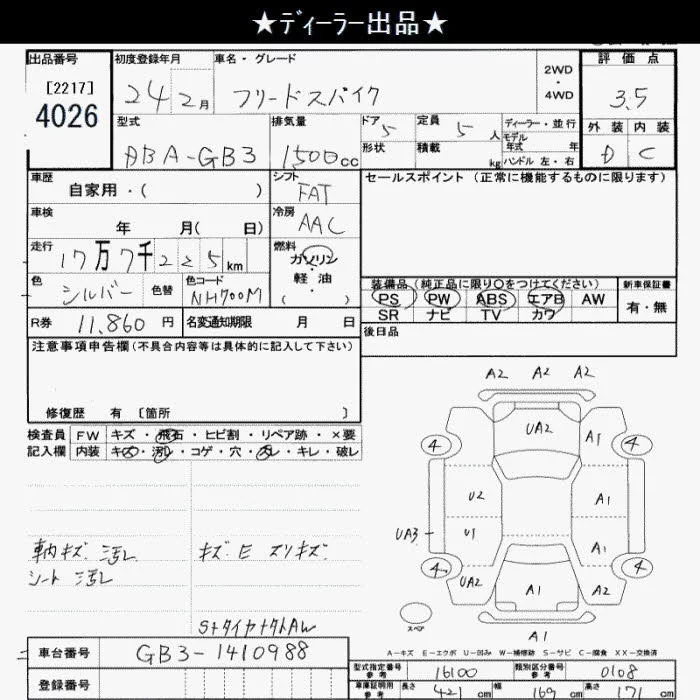 ★ディーラー出品★
出品番号
[2217]
4026
初度登録年月
24年2月
車名・グレード
フリードスパイク
2WD
・
4WD
評価点
3.5
外装 内装
D C
型式
DBA-GB3
排気量
1500cc
ドア
5
形状
定員
5人
積載
kg
ディーラー・並行
モデル
年式 年
ハンドル 左・右
車歴
自家用・( )
シフト
FAT
セールスポイント (正常に機能するものに限ります)
車検
年 月( 日)
冷房
AAC
走行
17万7千225km
燃料
ガソリン
・
軽油
( )
色
シルバー
色替
色コード
NH700M
装備品 (純正品に限り〇をつけてください)
PS PW ABS エアB AW
SR ナビ TV カワ
新車保証書
有・無
R券 11,860円
名変通知期限 月 日
後日品
注意事項申告欄(不具合内容等は具体的に記入して下さい)
修復歴 有 [箇所 ]
検査員
記入欄
FW キズ・飛石・ヒビ割・リペア跡・×要
内装 キズ・汚レ・コゲ・穴・スレ・キレ・破レ
車内キズ 汚レ
シート 汚レ
キズ E スリキズ
SナタイヤナクトAW
A2 A2 A2
UA2
A1
4 4
U2
A1
UA3
U1
A1
4 4
UA2
A1
A2
スペア
A1
A-キズ E-エクボ U-凹み W-補修跡 S-サビ C-腐食 XX-交換済
車台番号
GB3-1410988
登録番号
型式指定番号
参考
16100
類別区分番号
参考
0108
車庫証明用
参考
長さ 421cm
幅 169cm
高さ 171cm